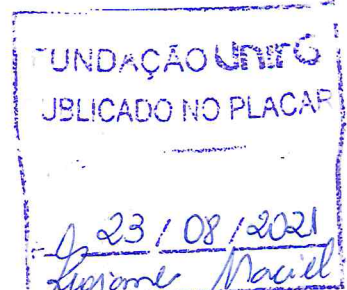 FUNDAÇÃO UnirG
PUBLICADO NO PLACAR
23 / 08 / 2021
Maciel